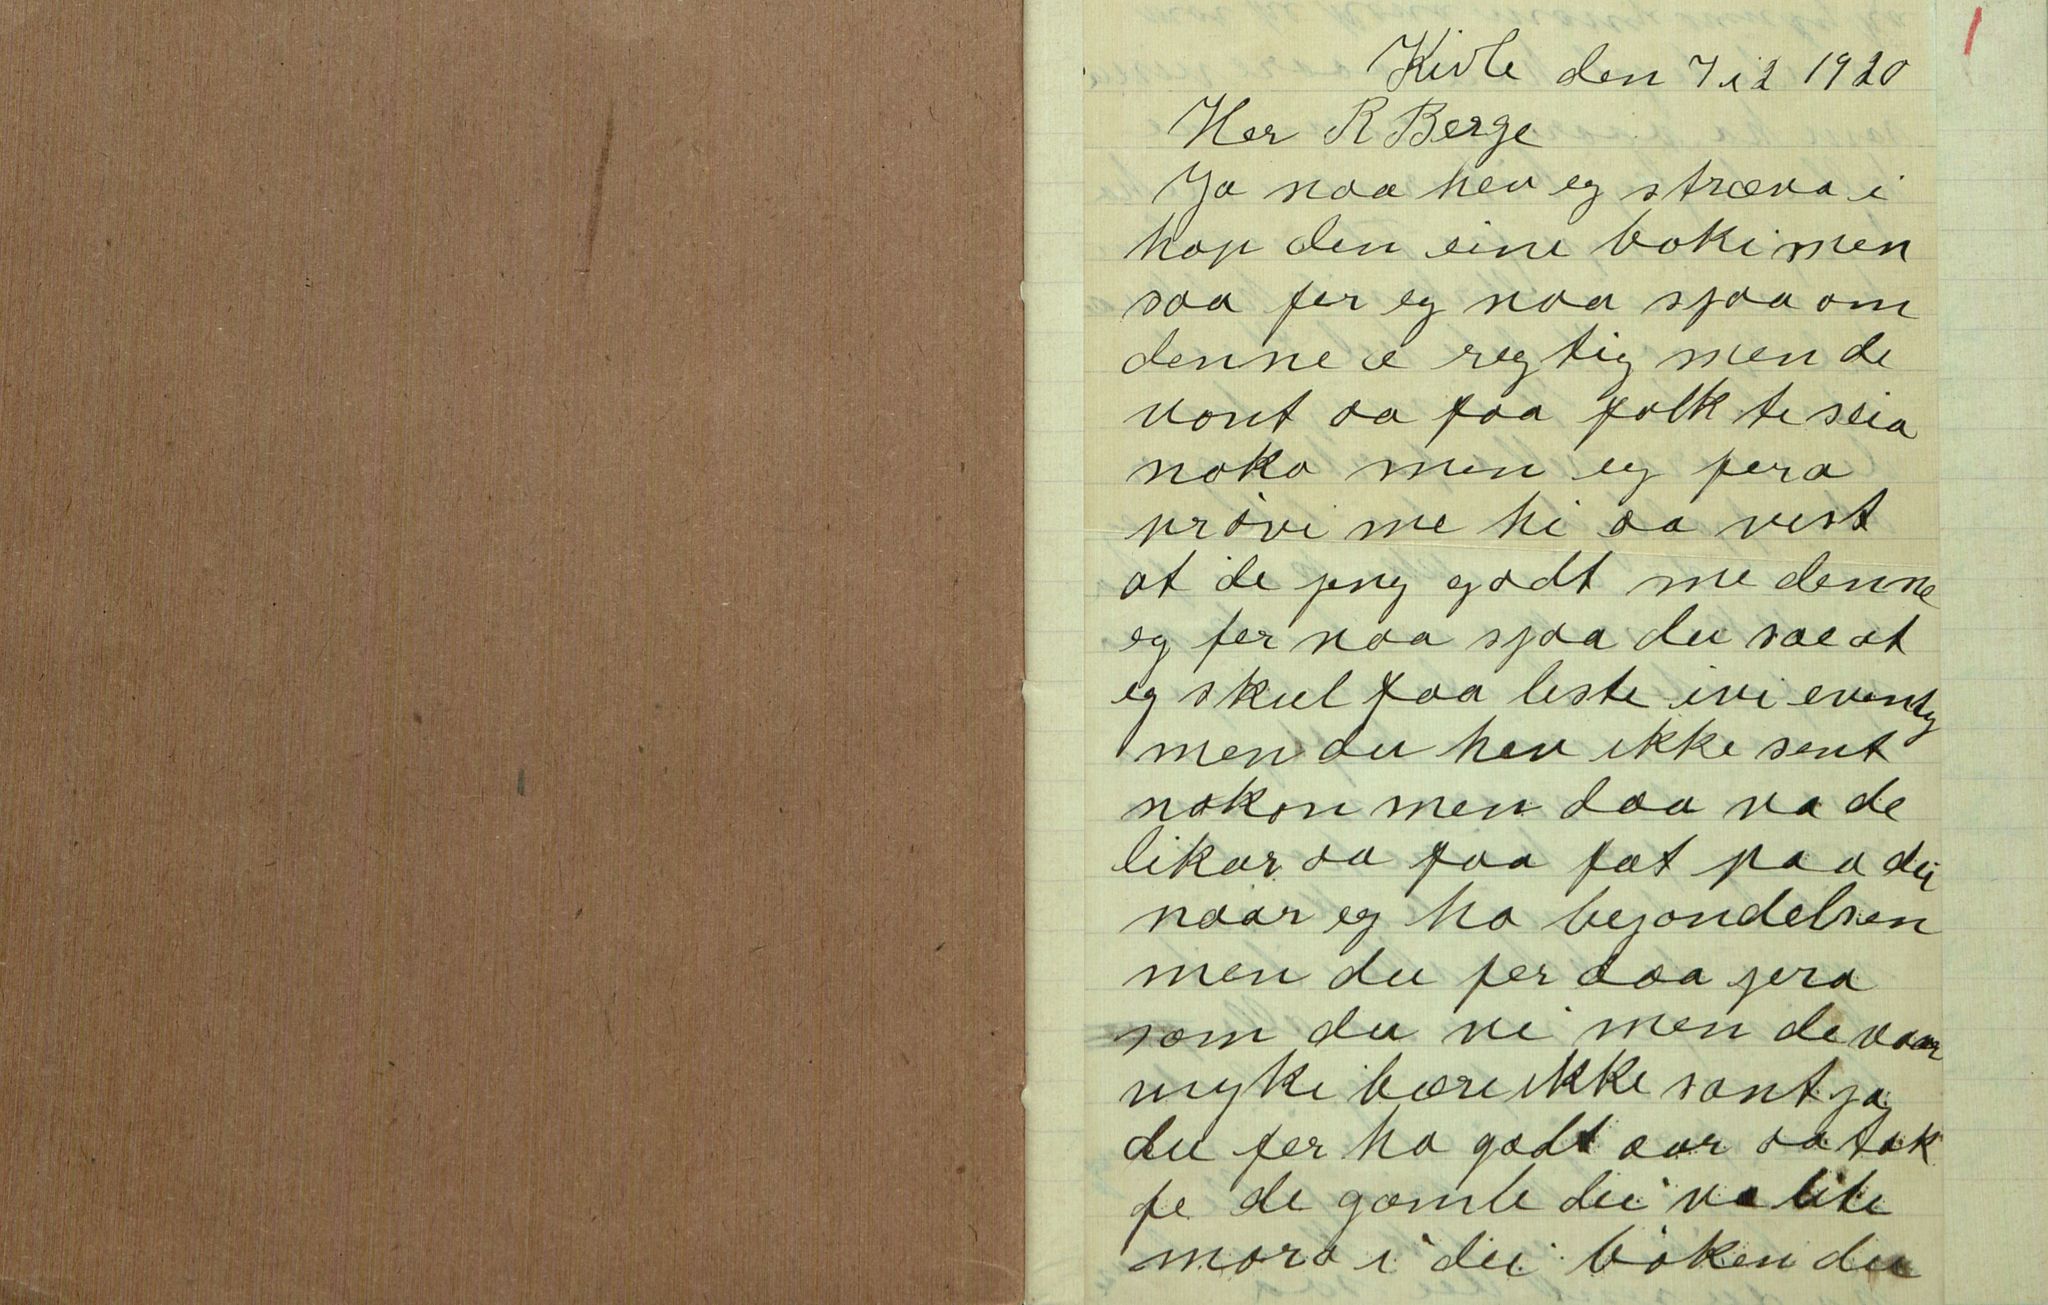 1
Kivle den 7 i 2 1920
Her R Berge
Ja naa hev eg stræva i
hop den eine boki men
saa fer eg naa sjaa om
denne æ regtig men de
vont aa faa folk te seia
noko men eg fera
prøvi me hi aa vist
at de geng godt me denne
eg fer naa sjaa du sae at
eg skul faa leste ivi eventy
men du hev ikke sent
nokon men daa va de
likar aa faa fat paa dei
naar eg ha begondelsen
men du fer daa gera
som du vi men de vaar
myki bære ikke sant ja
du fer ha godt aar aa tak
fe de gamle dei va lite
moro i dei bøken du